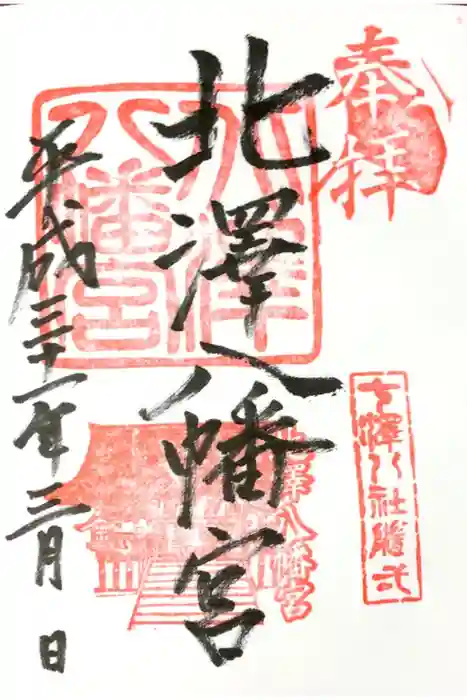 奉拝
七澤八社随弌
北澤八幡宮
北澤八幡宮
北澤八幡宮
平成三十一年三月 日